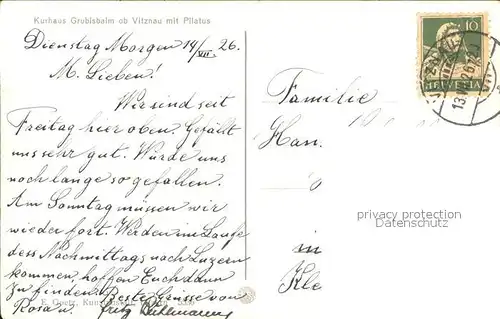 Kurhaus Grubisbalm ob Vitznau mit Pilatus
Dienstag Morgen 14/VII. 26
M. Lieben!
Wir sind seit
Freitag hier oben. Gefällt
uns sehr gut. Würde uns
noch lange so gefallen.
Am Sonntag müssen wir
wieder fort. Werden im Laufe
des Nachmittags nach Luzern
kommen, hoffen Euch dann
zu finden. Beste Grüsse von
Rosa u. Fritz
E. Goetz, Luzern
10
HELVETIA
Familie
Han
in
Kle
privacy protection
Datenschutz